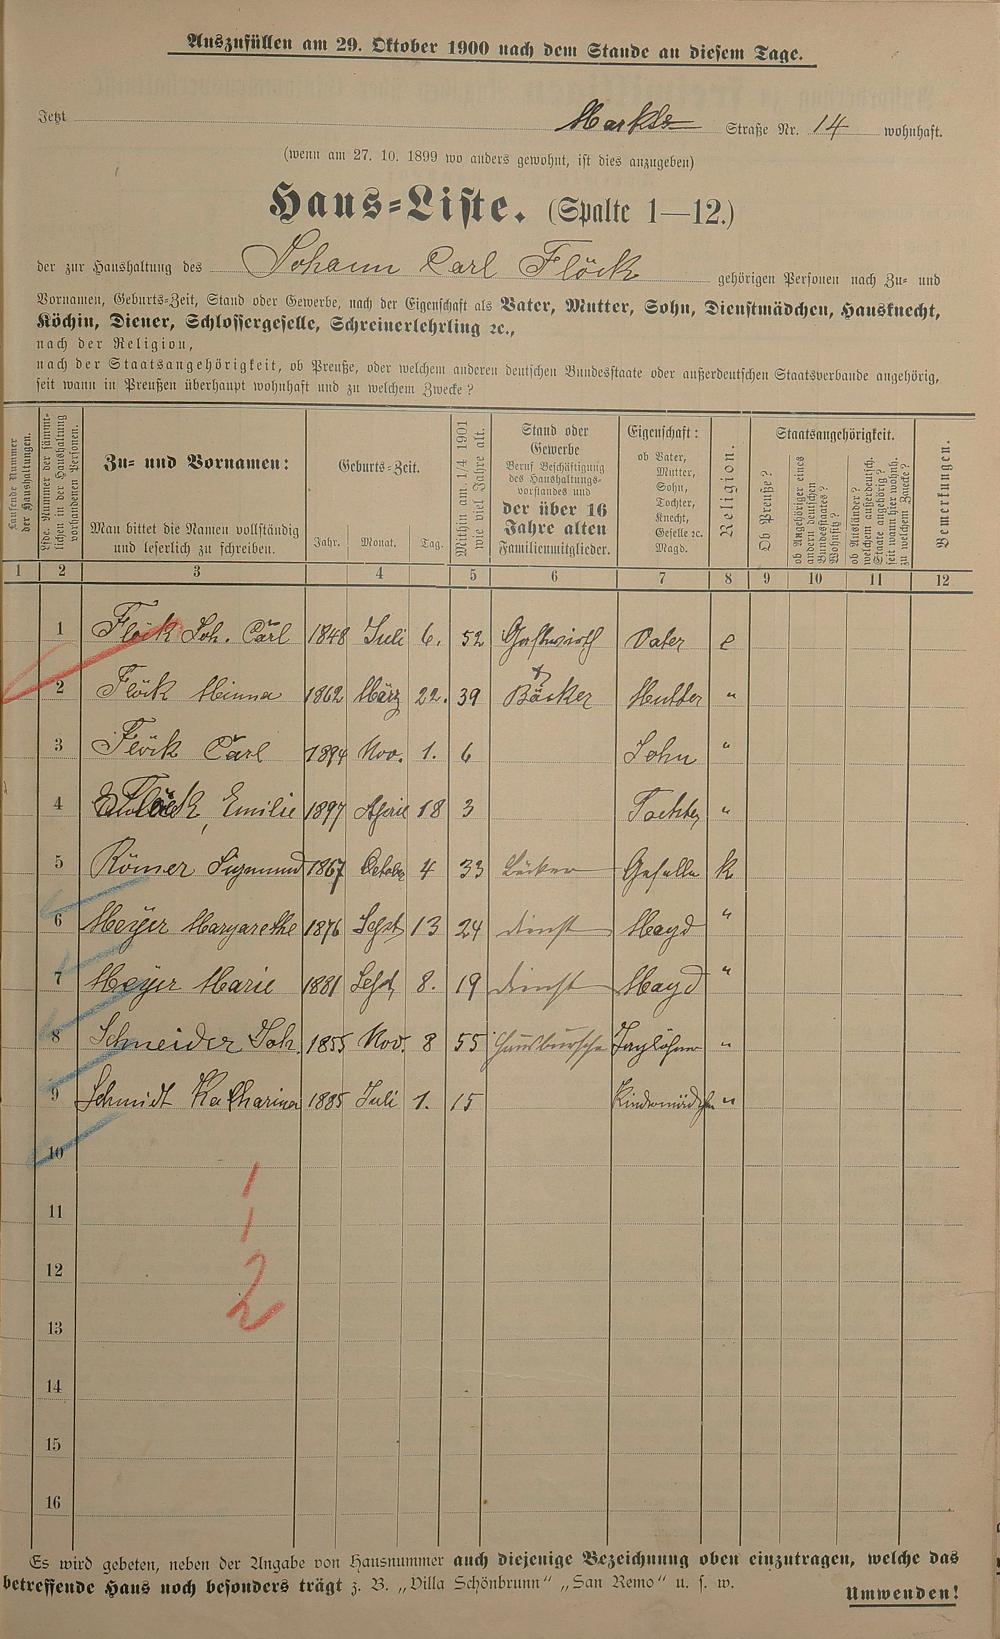 Auszufüllen am 29. Oktober 1900 nach dem Stande an diesem Tage.
Jetzt Markt Straße Nr. 14 wohnhaft.
(wenn am 27. 10. 1899 wo anders gewohnt, ist dies anzugeben)
Haus-Liste. (Spalte 1—12.)
der zur Haushaltung des Johann Carl Flöck gehörigen Personen nach Zu- und
Vornamen, Geburts-Zeit, Stand oder Gewerbe, nach der Eigenschaft als Vater, Mutter, Sohn, Dienstmädchen, Hausknecht,
Köchin, Diener, Schlossergeselle, Schreinerlehrling ꝛc.,
nach der Religion,
nach der Staatsangehörigkeit, ob Preuße, oder welchem anderen deutschen Bundesstaate oder außerdeutschen Staatsverbande angehörig,
seit wann in Preußen überhaupt wohnhaft und zu welchem Zwecke?
Laufende Nummer der Haushaltungen.
Lfde. Nummer der sämmtlichen in der Haushaltung vorhandenen Personen.
Zu- und Vornamen:
Man bittet die Namen vollständig
und leserlich zu schreiben.
Geburts-Zeit.
Jahr. Monat. Tag.
Mithin am 1/4 1901 wie viel Jahre alt.
Stand oder
Gewerbe
Beruf Beschäftigung
des Haushaltungs-
vorstandes und
der über 16
Jahre alten
Familienmitglieder.
Eigenschaft:
ob Vater,
Mutter,
Sohn,
Tochter,
Knecht,
Geselle ꝛc.
Magd.
Religion.
Staatsangehörigkeit.
Ob Preuße?
ob Angehöriger eines andern deutschen Bundesstaates? Wohnsitz?
ob Ausländer? welchem außerdeutsch. Staate angehörig? seit wann hier wohnh. zu welchem Zwecke?
Bemerkungen.
1 2 3 4 5 6 7 8 9 10 11 12
1 Flöck Joh. Carl 1848 Juli 6. 52 Gastwirth Vater e
2 Flöck Minna 1862 März 22. 39 Bäcker Mutter "
3 Flöck Carl 1894 Nov. 1. 6 Sohn "
4 Flöck, Emilie 1897 April 18 3 Tochter "
5 Römer Sigmund 1867 October 4 33 Bäcker Geselle k
6 Meyer Margarethe 1876 Sept 13 24 dienst Magd "
7 Meyer Marie 1881 Sept, 8. 19 dienst Magd "
8 Schneider Joh. 1855 Nov. 8 55 Hausbursche Taglöhner "
9 Schmidt Katharina 1885 Juli 1. 15 Kindermädchen "
10
1
11
1
12
2
13
14
15
16
Es wird gebeten, neben der Angabe von Hausnummer auch diejenige Bezeichnung oben einzutragen, welche das
betreffende Haus noch besonders trägt z. B. „Villa Schönbrunn" „San Remo" u. s. w.
Umwenden!